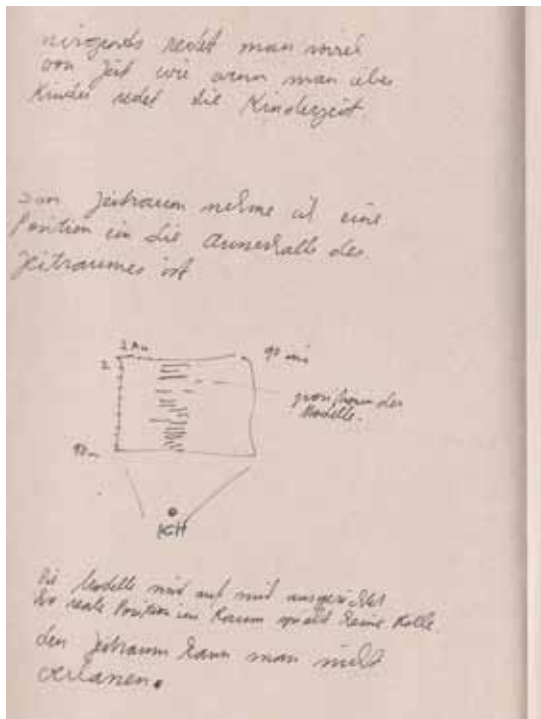 nirgends redet man soviel
von Zeit wie wenn man über
Kinder redet die Kinderzeit.
zum Zeitraum nehme ich eine
Position ein die Ausserhalb des
Zeitraumes ist
90 min
Modelle.
ICH
Die Modelle sind auf mich ausgerichtet
die reale Position im Raum spielt keine Rolle.
den Zeitraum kann man nicht
verlassen.